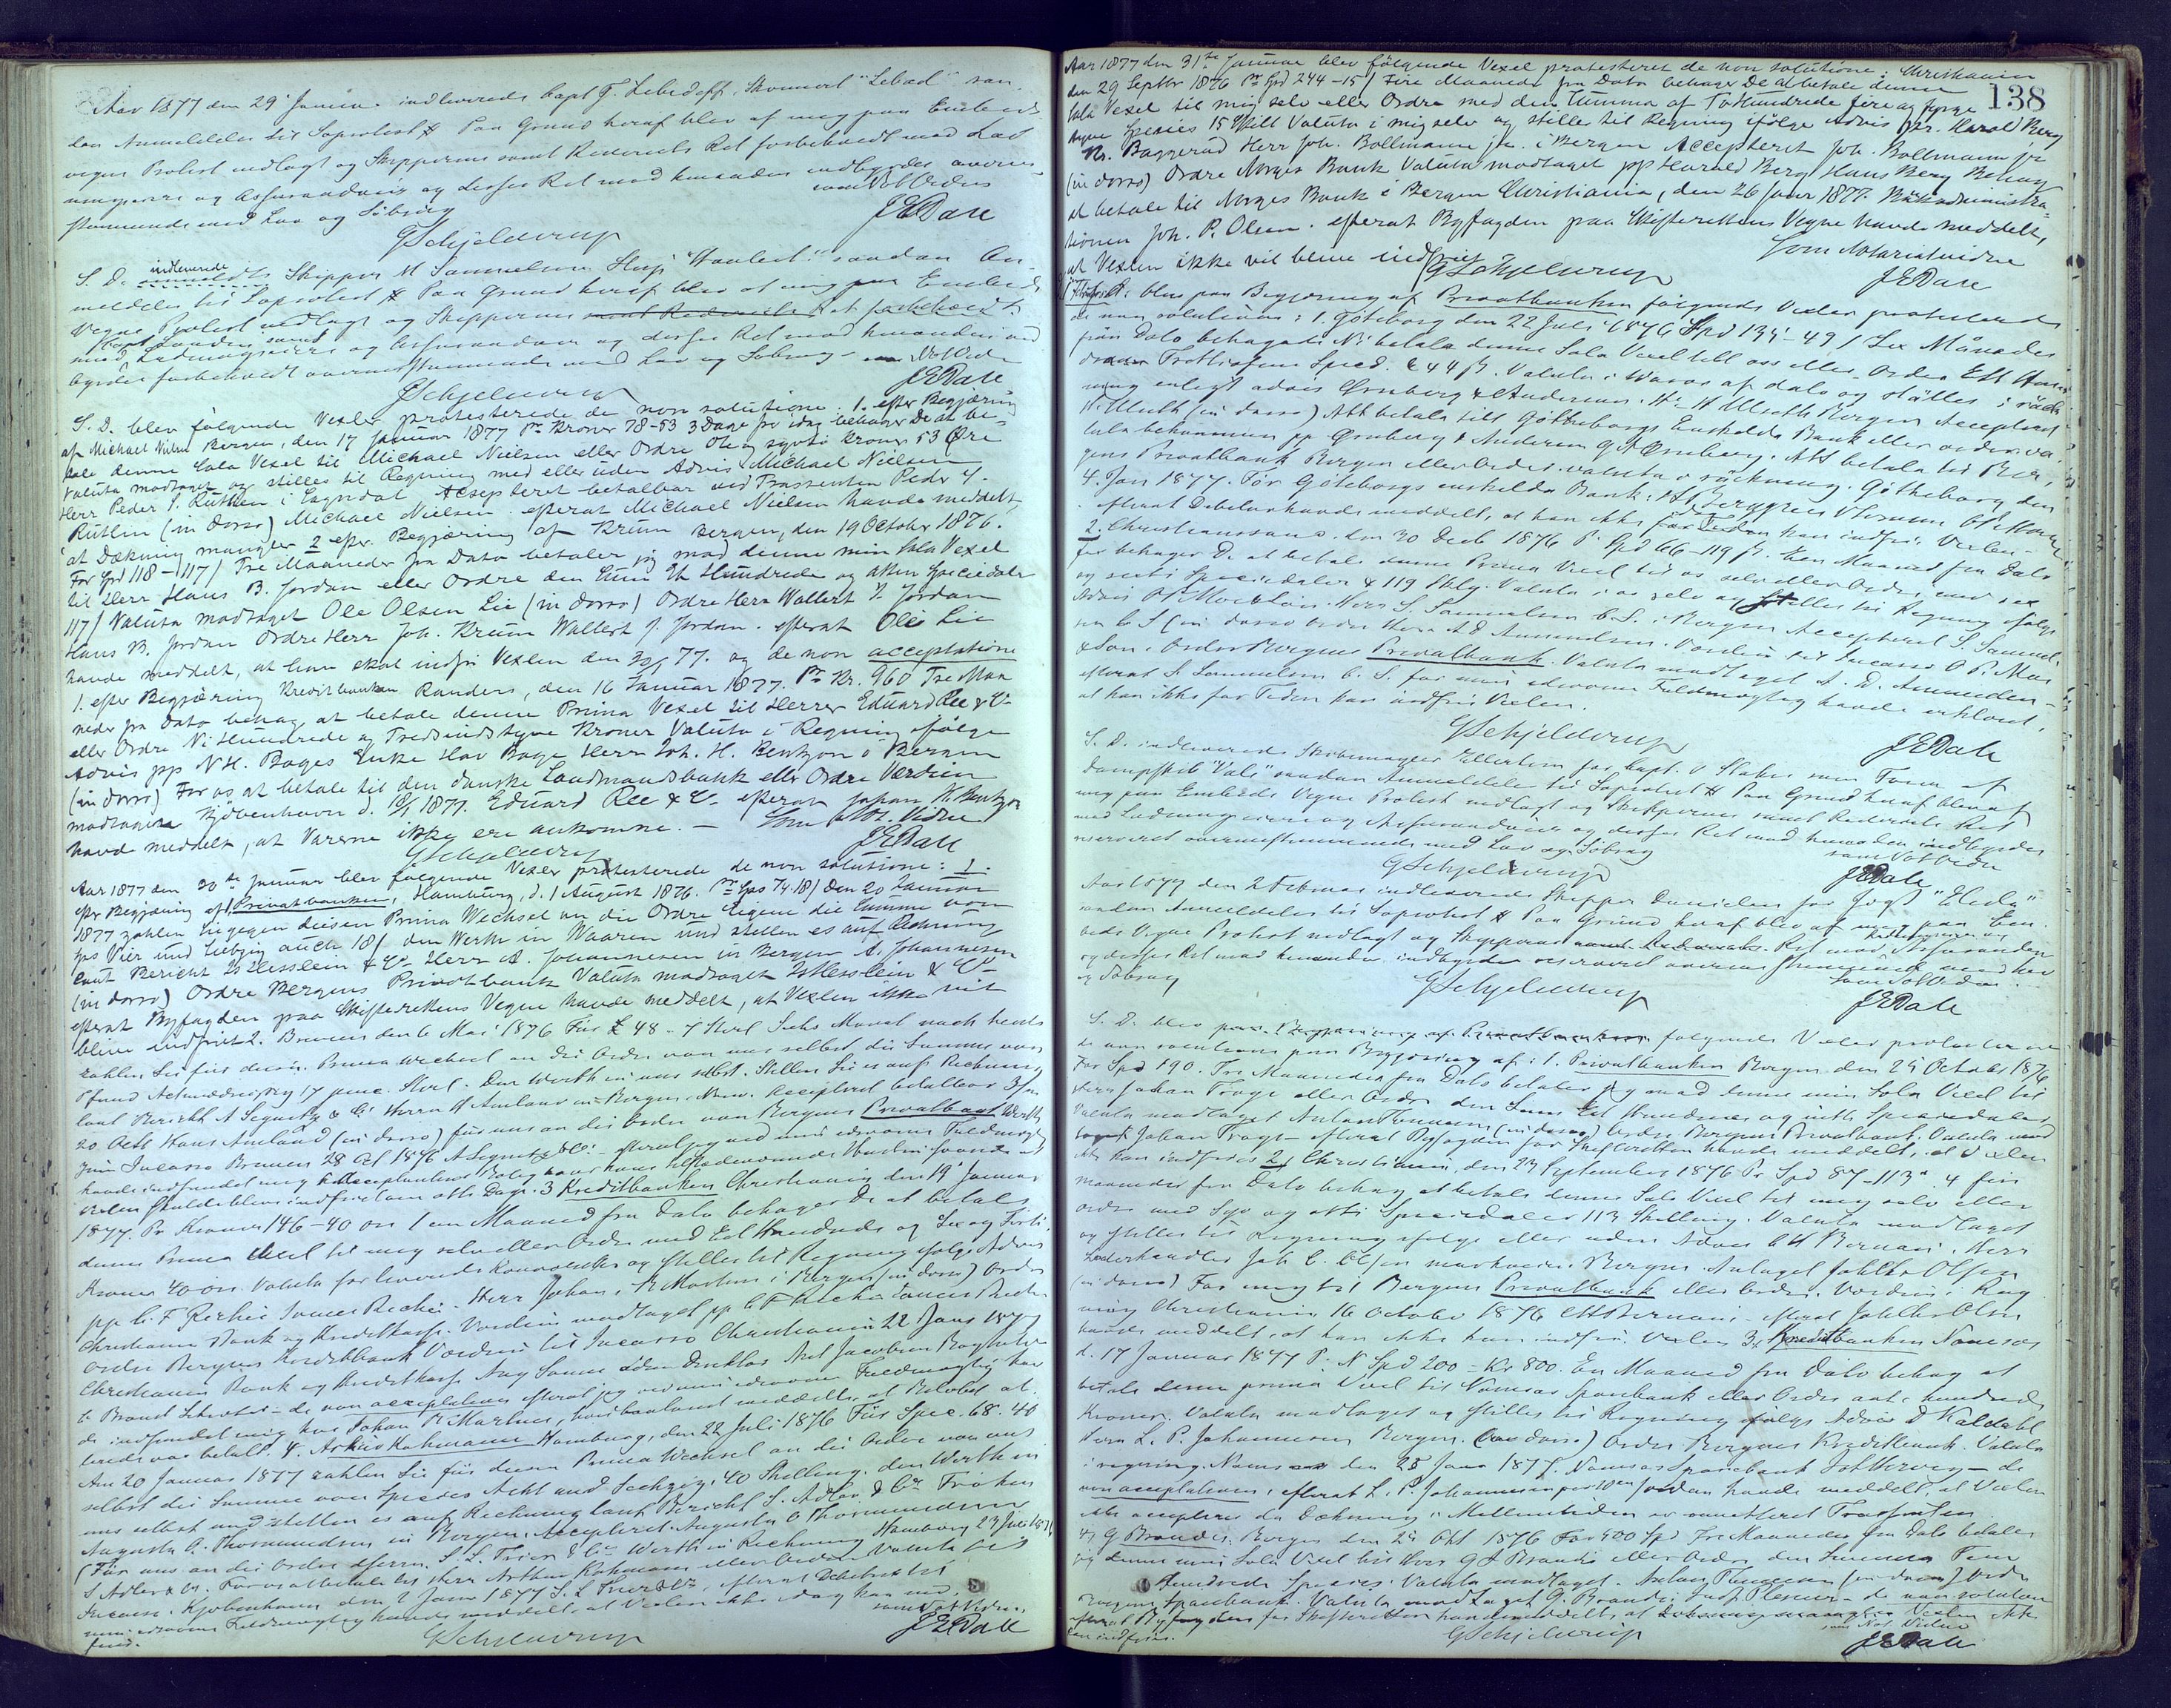 Aar 1877 den 29 Januar indleverede Capt F. Lebedoff, Skonnert "Lebad" saa
dan Anmeldelse til Søprotest & Paa Grund heraf blev af meg paa Embeds
vegne Protest nedlagt og Skipperens samt Rederiets Ret forbeholdt mod Lad
ningseiere og Assurandører og disses Ret mod hinanden indbyrdes overens
stemmende med Lov og Søbrug som Not Vidne
GSchjelderup JEDale
S. D. indleverede Skipper M Samuelsen Slup "Haabet" saadan An-
meldelse til Søprotest & Paa Grund heraf blev af meg paa Embeds
Vegne Protest nedlagt og Skipperens samt Rederiets Ret forbeholdt
mod Ladningseiere og Assurandører og disses Ret mod hinanden ind
byrdes forbeholdt overensstemmende med Lov og Søbrug - Not Vidne
GSchjelderup JEDale
S. D. blev følgende Vexler protesterede de non solutione: 1. efter Begjæring
af Michael Nielsen Bergen, den 17 Januar 1877 Pr Kroner 78-53 3 Dage fra idag behager De at be-
tale denne Sola Vexel til Michael Nielsen eller Ordre Otte og sytti Kroner 53 Øre
Valuta modtaget og stilles til Regning med eller uden Advis Michael Nielsen
Herr Peder I. Rutlin i Sogndal Accepteret betalbar ved Trassenten Peder I.
Rutlin (in dorso) Michael Nielsen efterat Michael Nielsen havde meddelt,
at Dækning mangler 2 efter Begjæring af Krüm Bergen, den 19 October 1876.
For Spd 118-117/ Tre Maaneder fra Dato betaler jeg mod denne min Sola Vexel
til Herr Hans B. Jordan eller Ordre den Sum Et Hundrede og atten Speciedaler
117/ Valuta modtaget Ole Olsen Lie (in dorso) Ordre Herr Wallert J. Jordan
Hans B. Jordan Ordre Herr Joh. Krüm Wallert J. Jordan. efterat Ole Lie
havde meddelt, at han skal indfri Vexlen den 30/1 77. og de non acceptatione
1. efter Begjæring Kreditbanken Randers, den 16 Januar 1877. Pr Kr. 960 Tre Maa
neder fra Dato behag at betale denne Prima Vexel til Herrer Eduard Ree & Co
eller Ordre Ni Hundrede og Tredsindstyve Kroner Valuta i Regning ifølge
Advis pp N H. Bages Enke Hav Bage Herr Joh. H. Bentzon i Bergen
(in dorso) For os at betale til den danske Landmandsbank eller Ordre Værdien
modtagen Kjøbenhavn d. 18/1 1877. Eduard Ree & Co efterat Johan H. Bentzon
havde meddelt, at Varerne ikke ere ankomne. - Som Not. Vidne
GSchjelderup JEDale
Aar 1877 den 30te Januar blev følgende Vexler protesterede de non solutione: 1.
efter Begjæring af Privatbanken, Hamburg, d. 1 August 1876. Pr Sps 74.18/ Den 20 Januar
1877 zahlen Sie gegen diesen Prima Wechsel an die Ordre Eigene die Summe von
Sps Vier und Siebzig auch 18/ den Werth in Waaren und stellen es auf Rechnung
laut Bericht Hesslein & Co Herrn A. Johannesen in Bergen A. Johannesen
(in dorso) Ordre Bergens Privatbank Valuta modtaget Hesslein & Co
efterat Byfogden paa Skifterettens Vegne havde meddelt, at Vexlen ikke vil
blive indfriet 2. Bremen den 6 Mai 1876 Für £ 48-7 Sterl Sechs Monat nach heute
zahlen Sie für diesen Prima Wechsel an die Ordre von uns selbst die Summe von
Pfund Achtundvierzig 17 penc. Sterl. Den Werth in uns selbst. Stellen Sie es auf Rechnung
laut Bericht A Segnitz & Co Herrn H Amland in Bergen Nrw. Accepteret betalbar
20 Octb Hans Amland (in dorso) für uns an die Ordre von Bergens Privatbank Werth
zum Incasso Bremen 28 1876 A Segnitz & Co: efterat jeg ved min edsvorne Fuldmægtig
havde indfundet mig
Vexlen skulde blive indfriet om otte Dage. 3 Kreditbanken Christiania den 19 Januar
1877. Pr Kroner 146-40 øre 1 en Maaned fra Dato behager De at betale
denne Prima Vexel til mig selv eller Ordre med Et Hundrede og Sex og Forti
Kroner 40 øre. Valuta for leverede og stilles til Regning ifølge Advis
pp C. F Recke Herr Johan R Martens i Bergen (in dorso) Ordre
Christiania Bank og Kreditkasse. Værdien modtaget pp C F Recke
Ordre Bergens Kreditbank Værdien til Incasso Christiania 22 Janr 1877
Christiania Bank og Kreditkasse
de non acceptatione efterat jeg ved min edsvorne Fuldmægtig hav
de indfundet mig hos Johan R Martens, hvis meddelte at Beløbet al
lerede var betalt 4. Arthur Kahmann Hamburg, den 22 Juli 1876 Für Spec. 68. 40
Am 20 Januar 1877 zahlen Sie für diesen Prima Wechsel an die Ordre von uns
selbst die Summe von Species Acht und Sechzig. 40 Skilling. den Werth in
uns selbst und stellen es auf Rechnung laut Bericht S. Adler & Co Frøken
Augusta A. Thormundsen in Bergen. Accepteret. Augusta Thormundsen
(Für uns an die Ordre Herrn S. L. Trier & Co Werth in Rechnung Hamburg 23 Juli 1876
S Adler & Co. For os at betale til Herr Arthur Kahmann eller Ordre Valuta til
Incasso. Kjøbenhavn den 2 Janr 1877 S. L Trier & Co, efterat Debitor til
min edsvorne Fuldmægtig havde meddelt, at Vexlen ikke idag kan ind
fries. som Not Vidne
GSchjelderup JEDale
138
Aar 1877 den 31te Januar blev følgende Vexel protesteret de non solutione: Christiania
den 29 Septbr 1876 Pr Spd 244-15/ Fire Maaneder fra Dato behager De at betale denne
Sola Vexel til mig selv eller Ordre med den Summa af To Hundrede fire og førge
Species 15 Skill Valuta i mig selv og stilles til Regning ifølge Advis pr. Harald Berg
Baggerud Herr Joh. Bollmann jr. i Bergen Accepteret Joh. Bollmann jr
(in dorso) Ordre Norges Bank Valuta modtaget pp Harald Berg Hans Berg Behag
at betale til Norges Bank i Bergen Christiania, den 26 Janr 1877. Bankadministra-
tionen Joh. P. Olsen. efterat Byfogden paa Skifterettens Vegne havde meddelt,
at Vexlen ikke vil blive indfriet Som Notarialvidne
GSchjelderup JEDale
blev paa Begjæring af Privatbanken følgende Vexler protesterede
de non solutione: 1. Göteborg den 22 Juli 1876 Spd 135-49/ Sex Månader
från Dato behagade Ni betala denna Sola Vexel till oss eller Order Ett Hun
drade Trettiofem Spec. & 44 β. Valuta i Waror af dato og ställes i räk
ning enligt advis Ørnberg & Anderson. Hr H Mieth Bergen Accepteret
H. Mieth (in dorso) Att betala till Götheborgs Enskilda Bank eller order, va
luta bekommen pp Ørnberg & Anderson G A Ørnberg. Att betala till Ber
gens Privatbank Bergen eller order. valuta i räkning. Götheborg den
4. Jan 1877. För Göteborgs enskilda Bank:
efterat Debitor havde meddelt, at han ikke for Tiden kan indfri Vexlen -
2. Christianssand den 30 Decb 1876 Pr Spd 66-119 β. Een Maaned fra Dato
behager De at betale denne Prima Vexel til os selv eller Ordre, med sex
og sexti Speciedaler & 119 Skilg. Valuta i os selv og stilles til Regning ifølge
Advis O P Moe & Søn. Herr S. Samuelsen C. S. i Bergen Accepteret S. Samuel
sen C S (in dorso Ordre Herr A D Amundsen. Værdien til Incasso O P. Moe
& Søn. Ordre Bergens Privatbank. Valuta modtaget A. D. Amundsen -
efterat S. Samuelsen C. S. for min edsvorne Fuldmægtig havde erklæret,
at han ikke for Tiden kan indfri Vexlen.
GSchjelderup JEDale
S. D. indleverede Skibsmægler Ellertsen for Capt. O Staber som Fører af
Dampskib "Vale" saadan Anmeldelse til Søprotest & Paa Grund heraf blev af
meg paa Embeds Vegne Protest nedlagt og Skipperens samt Rederiets Ret
mod Ladningseiere og Assurandører og disses Ret mod hinanden indbyrdes
reserveret overensstemmende med Lov og Søbrug som Not Vidne
GSchjelderup JEDale
Aar 1877 den 2 Februar indleverede Skipper Danielsen for Jagt "Eleda"
saadan Anmeldelse til Søprotest & Paa Grund heraf blev af meg paa Em-
beds Vegne Protest nedlagt og Skipperens samt Rederiets Ret mod Ladningseiere og Assurandører
og disses Ret mod hinanden indbyrdes reserveret overensstemmende med Lov
og Søbrug som Not Vidne.
GSchjelderup JEDale
S. D. blev paa Begjæring af Privatbanken følgende Vexler protesterede
de non solutione paa Begjæring af: 1. Privatbanken Bergen den 25 October 1876.
For Spd 190. Tre Maaneder fra Dato betaler jeg mod denne min Sola Vexel til
Herr Johan Trage eller Ordre den Sum Et Hundrede og nitti Speciedaler
Valuta modtaget Anton (in dorso) Ordre Bergens Privatbank. Valuta mod
taget Johan Trage - efterat Byfogden for Skifteretten havde meddelt, at Vexlen
ikke kan indfries 2, Christiania, den 23 September 1876 Pr Spd 87-113". 4 fire
maaneder fra Dato behag at betale denne Sola Vexel til mig selv eller
ordre med Syv og otti Speciedaler 113 Skilling. Valuta modtaget
og stilles til Regning ifølge eller uden Advis C H Bernani. Herr
Læderhandler Joh. C. Olsen Bergen. Antaget Joh Chr Olsen
(in dorso) For meg til Bergens Privatbank eller Ordre. Værdien i Reg
ning Christiania 16 October 1876 C H Bernani - efterat Joh Chr Olsen
havde meddelt, at han ikke kan indfri Vexlen 3, Kreditbanken Namsos
d. 17 Januar 1877 Pr N Spd 200 - Kr 800. En Maaned fra Dato behag at
betale denne prima Vexel til Namsos Sparebank eller Ordre aatte hundrede
Kroner. Valuta modtaget og stilles til Regning ifølge Advis D Kaldahl
Herr L. P. Johannesen Bergen. (in dorso) Ordre Bergens Kreditbank. Valuta
i regning. Namsos den 25 Janr 1877. Namsos Sparebank - de
non acceptatione, efterat L. P. Johannesen havde meddelt, at Vexlen
ikke accepteres da Dækning i Mellemtiden er remitteret Trassenten
4, G Brandi. Bergen den 25 Okt 1876 For 500 Spd Tre Maaneder fra Dato betaler
jeg denne min Sola Vexel til Herr G J Brandi eller Ordre den Summa Fem
Hundrede Species. Valuta modtaget. Anton (in dorso) Ordre
Bergens Sparebank. Valuta modtaget G. Brandi. - de non solutione
efterat Byfogden for Skifteretten havde meddelt, at Vexlen ikke
kan indfries. som Not. Vidne
GSchjelderup JEDale